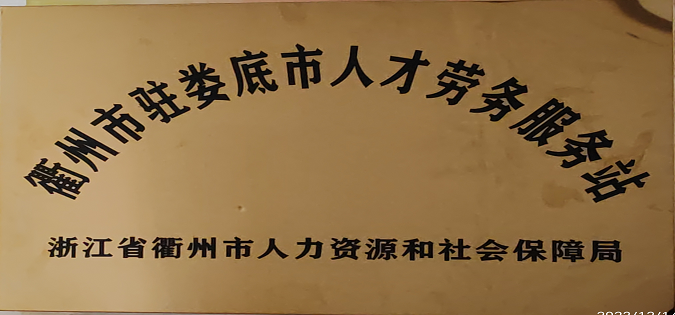 衢州市驻娄底市人才劳务服务站
浙江省衢州市人力资源和社会保障局